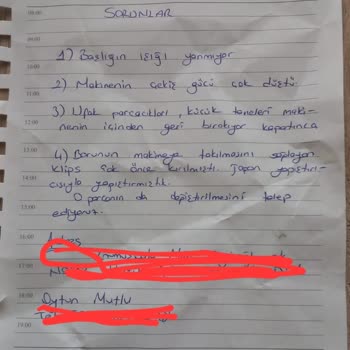 08:00
SORUNLAR
09:00
1) Başlığın ışığı yanmıyor
10:00
2) Makinenin çekiş gücü çok düştü.
11:00
3) Ufak parçacıkları, küçük taneleri maki-
12:00
nenin içinden geri bırakıyor kapatınca
13:00
4) Borunun makineye takılmasını sağlayan
14:00
klips çok önce kırılmıştı. Japon yapıştırı-
cısıyla yapıştırmıştık.
O parçanın da değiştirilmesini talep
15:00
ediyoruz.
16:00
17:00
18:00
Oytun Mutlu
19:00